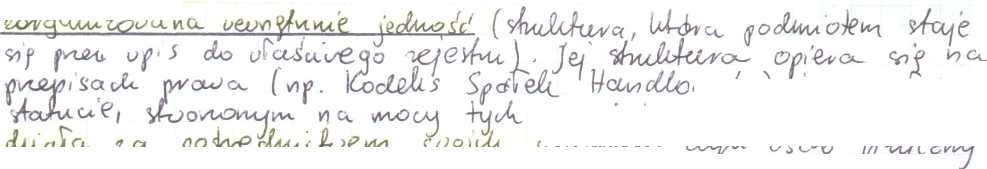 zorganizowana wewnętrznie jedność (struktura, która podmiotem staje
się przez wpis do właściwego rejestru). Jej struktura opiera się na
przepisach prawa (np. Kodeks Spółek Handlo.
statucie, stworzonym na mocy tych
działa za pośrednictwem swoich